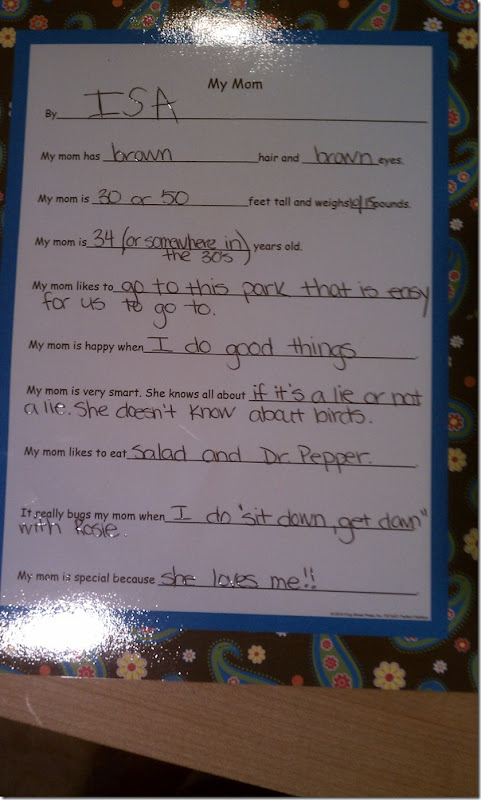 My Mom
By ISA
My mom has brown hair and brown eyes.
My mom is 30 or 50 feet tall and weighs pounds.
My mom is 34 (or somewhere in) years old.
the 30's
My mom likes to go to this park that is easy
for us to go to.
My mom is happy when I do good things.
My mom is very smart. She knows all about if it's a lie or not
a lie. She doesn't know about birds.
My mom likes to eat salad and Dr. Pepper.
It really bugs my mom when I do "sit down, get down"
with Rosie.
My mom is special because she loves me!!